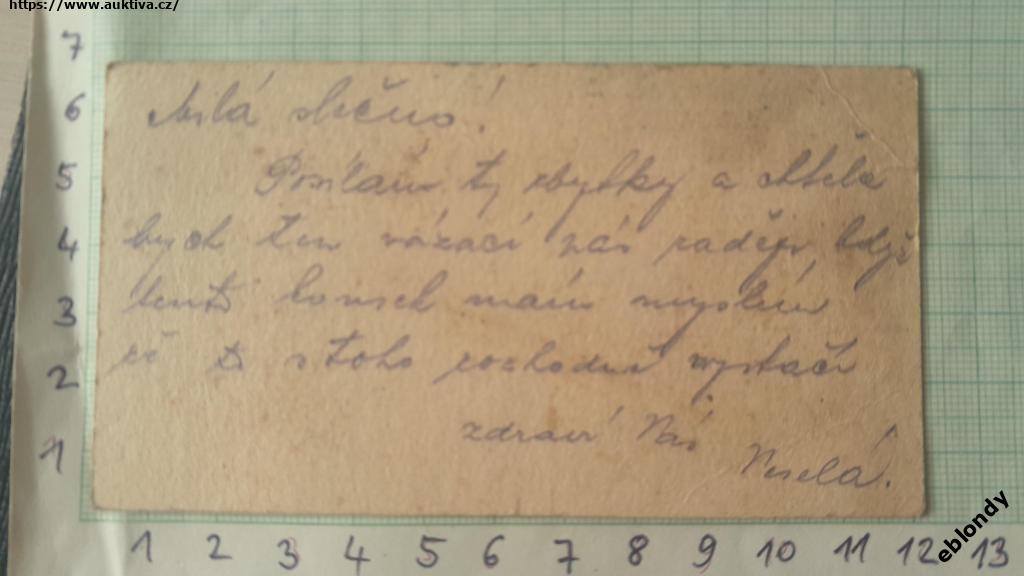 https://www.auktiva.cz/
7
6
5
4
3
2
1
Milá slečno!
Posílám ty zbytky a chtěla
bych ten vázací pás raději, když
tento kousek mám myslím
že to s toho rozhodně vystačí
zdraví Vás
Veselá.
1 2 3 4 5 6 7 8 9 10 11 12 13
eblondy